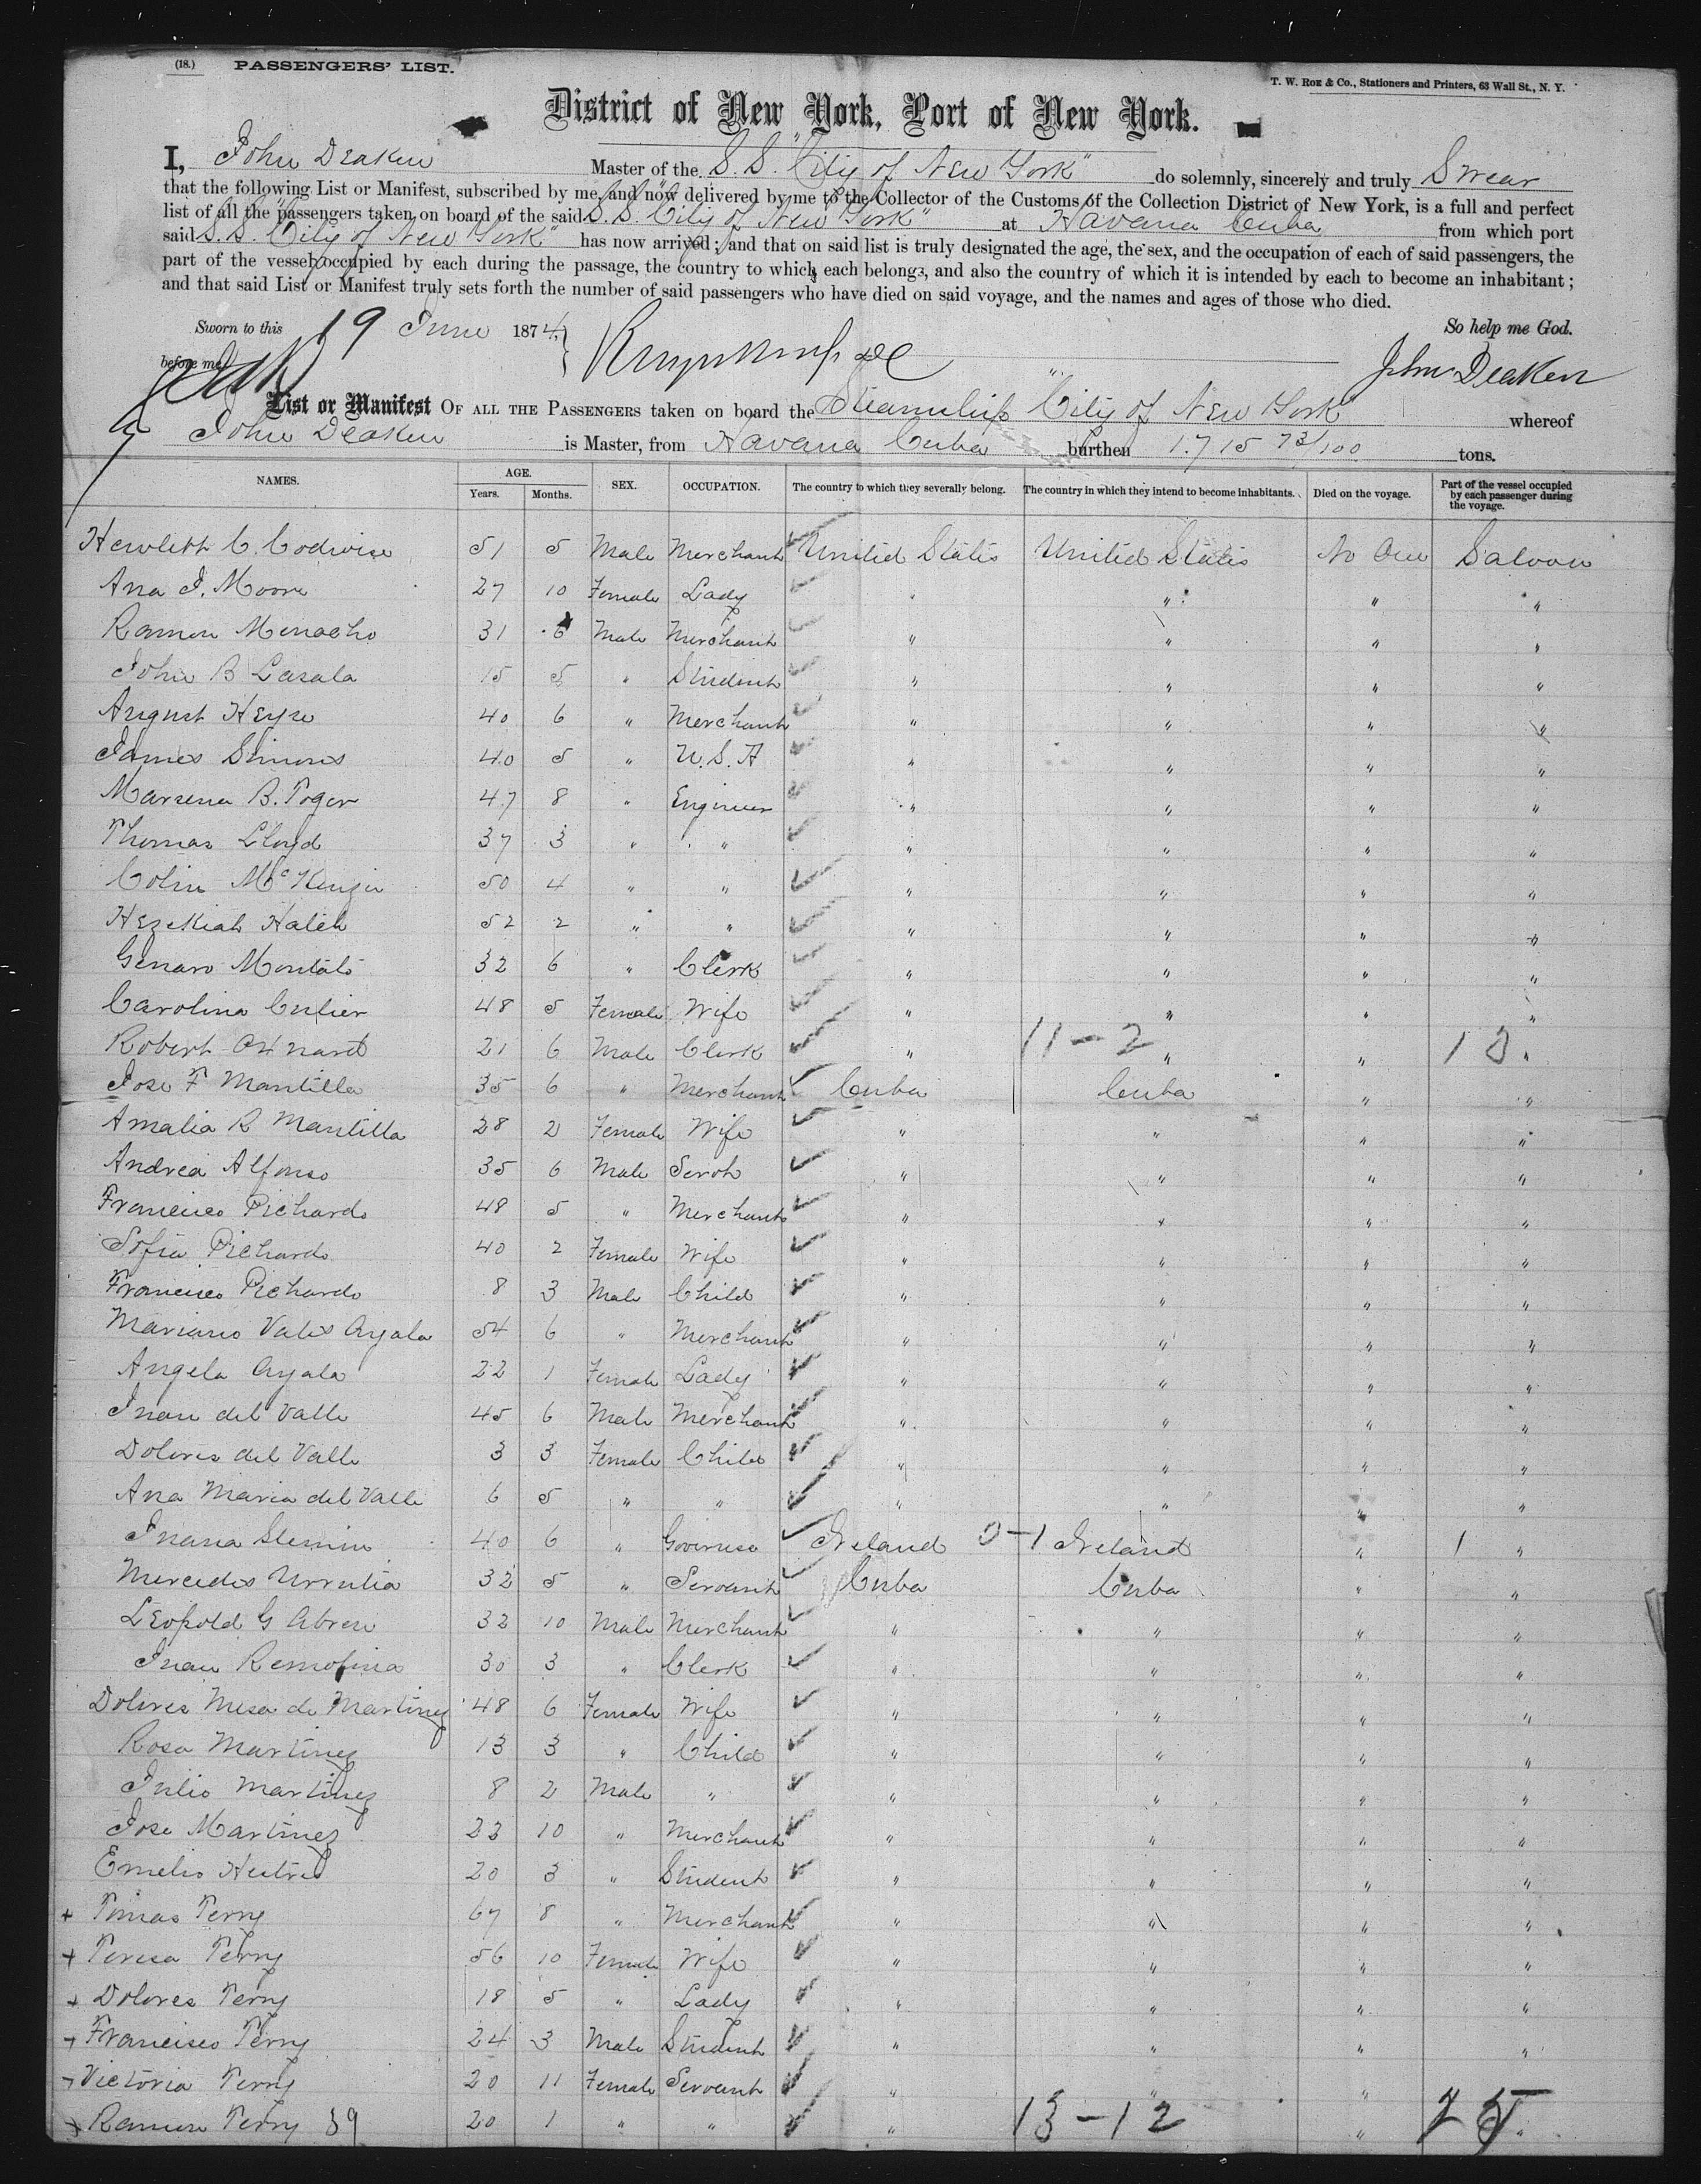 (18.) PASSENGERS' LIST.
T. W. ROE & Co., Stationers and Printers, 63 Wall St., N. Y.
District of New York, Port of New York.
I, John Deaken Master of the S.S. "City of New York" do solemnly, sincerely and truly Swear
that the following List or Manifest, subscribed by me, and now delivered by me to the Collector of the Customs of the Collection District of New York, is a full and perfect
list of all the passengers taken on board of the said S.S. "City of New York" at Havana Cuba from which port
said S.S. "City of New York" has now arrived; and that on said list is truly designated the age, the sex, and the occupation of each of said passengers, the
part of the vessel occupied by each during the passage, the country to which each belongs, and also the country of which it is intended by each to become an inhabitant;
and that said List or Manifest truly sets forth the number of said passengers who have died on said voyage, and the names and ages of those who died.
Sworn to this 19 June 1874, So help me God.
before me John Deaken
List or Manifest OF ALL THE PASSENGERS taken on board the Steamship "City of New York" whereof
John Deaken is Master, from Havana Cuba burthen 1.715 73/100 tons.
NAMES. AGE. Years. Months. SEX. OCCUPATION. The country to which they severally belong. The country in which they intend to become inhabitants. Died on the voyage. Part of the vessel occupied by each passenger during the voyage.
Hewlett C. Codwise 51 5 Male Merchant United States United States No One Saloon
Ana J. Moore 27 10 Female Lady " " " "
Ramon Menacho 31 6 Male Merchant " " " "
John B Lasala 15 5 " Student " " " "
August Heyse 40 6 " Merchant " " " "
James Simons 40 5 " U.S.A " " " "
B. 47 8 " Engineer " " " "
Thomas Lloyd 37 3 " " " " " "
Colin McKenzie 50 4 " " " " " "
Hezekiah 52 2 " " " " " "
Genaro 32 6 " Clerk " " " "
Carolina 48 5 Female Wife " " " "
Robert Oxnard 21 6 Male Clerk " 11-2 " " 13 "
Jose F Mantilla 35 6 " Merchant Cuba Cuba " "
Amalia R Mantilla 28 2 Female Wife " " " "
Andrea Alfonso 35 6 Male Servt " " " "
Francisco Pichardo 48 5 " Merchant " " " "
Sofia Pichardo 40 2 Female Wife " " " "
Francisco Pichardo 8 3 Male Child " " " "
Mariano Ayala 54 6 " Merchant " " " "
Angela Ayala 22 1 Female Lady " " " "
Juan del Valle 45 6 Male Merchant " " " "
Dolores del Valle 3 3 Female Child " " " "
Ana Maria del Valle 6 5 " " " " " "
Juana 40 6 " Governess Ireland 0-1 Ireland " 1 "
Mercedes Urrutia 32 5 " Servant Cuba Cuba " "
Leopold G Abreu 32 10 Male Merchant " " " "
Juan Remofina 30 3 " Clerk " " " "
Dolores Mesa de Martinez 48 6 Female Wife " " " "
Rosa Martinez 13 3 " Child " " " "
Julio Martinez 8 2 Male " " " " "
Jose Martinez 23 10 " Merchant " " " "
Emelio 20 3 " Student " " " "
+ Tomas Terry 67 8 " Merchant " " " "
+ Teresa Terry 56 10 Female Wife " " " "
+ Dolores Terry 18 5 " Lady " " " "
+ Francisco Terry 24 3 Male Student " " " "
+ Victoria Terry 20 11 Female Servant " " " "
+ Ramon Terry 39 20 1 " " " 13-12 " "